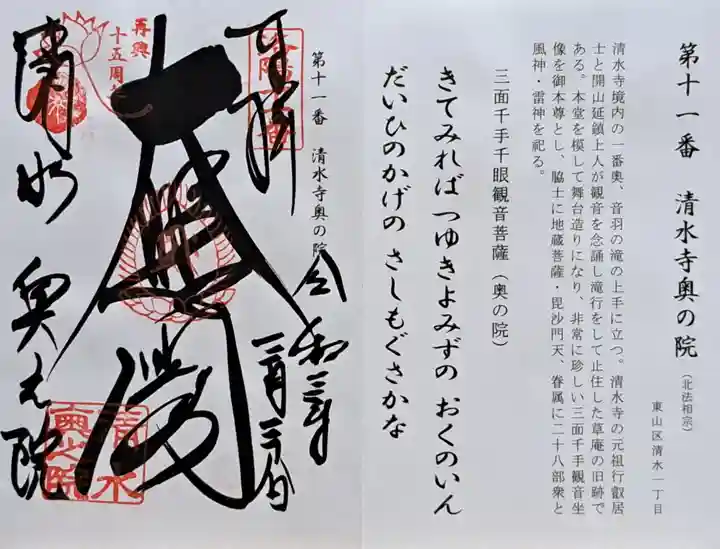 第十一番 清水寺奥の院
(北法相宗)
東山区清水一丁目
清水寺境内の一番奥、音羽の滝の上手に立つ。清水寺の元祖行叡居
士と開山延鎮上人が観音を念誦し滝行をして止住した草庵の旧跡で
ある。本堂を模して舞台造りになり、非常に珍しい三面千手観音坐
像を御本尊とし、脇士に地蔵菩薩・毘沙門天、眷属に二十八部衆と
風神・雷神を祀る。
三面千手千眼観音菩薩(奥の院)
きてみれば つゆきよみずの おくのいん
だいひのかげの さしもぐさかな
第十一番 清水寺奥の院
奉拝
令和三年
大悲閣
再興
十五周年
清水 奥之院
清水
奥之院